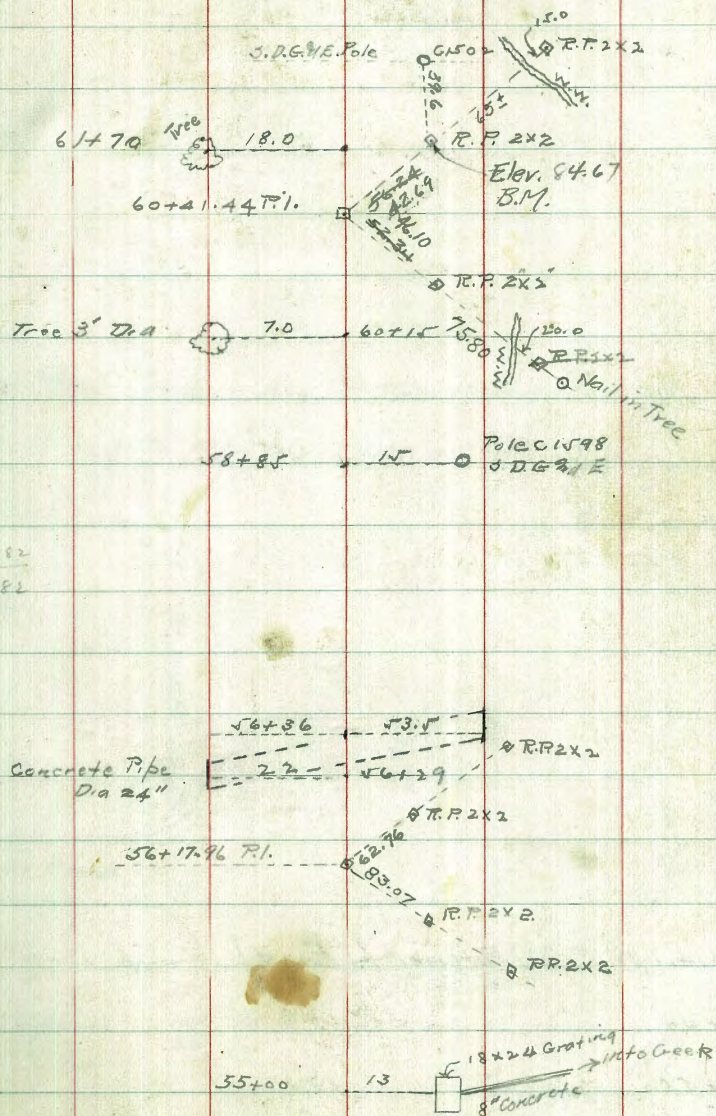 15.0
S.D.G.&E. Pole C1502 R.P. 2x2
39.6 65± W.W.
61+70 Tree 18.0 R.P. 2x2
Elev. 84.67
B.M.
60+41.44 P.I. 56.24
42.69
46.10
52.34
R.P. 2"x2"
Tree 3' Dia 7.0 60+15 75.80 20.0
R.P. 2x2
Nail in Tree
Pole C1598
58+85 15 S.D.G. & E
82
82
56+36 53.5
R.P. 2x2
Concrete Pipe 22 56+29
Dia 24"
R.P. 2x2
56+17.96 P.I. 62.76
83.07
R.P. 2x2
R.P. 2x2
18x24 Grating
into Creek
55+00 13
8" Concrete